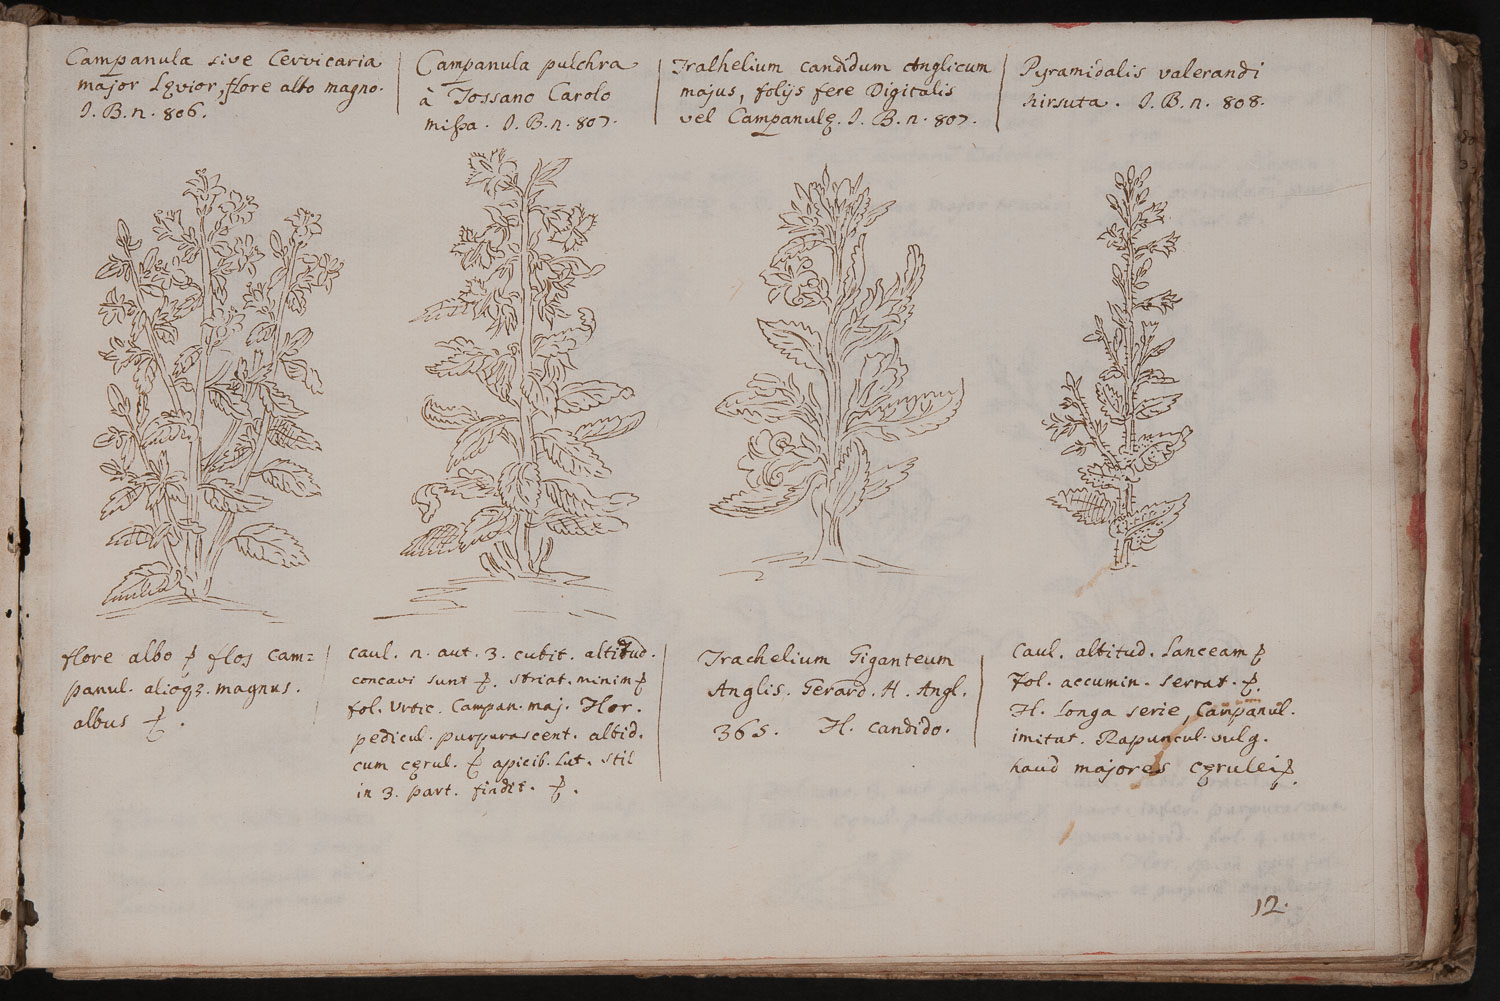 Campanula sive Cervicaria
major Lęvior, flore albo magno.
I. B. n. 806.
Campanula pulchra
à Tossano Carolo
missa. I. B. n. 807.
Tralhelium candidum Anglicum
majus, folijs fere Digitalis
vel Campanulę. I. B. n. 807.
Pyramidalis valerandi
hirsuta. I. B. n. 808.
flore albo flos cam=
panul. alioqz. magnus.
albus
caul. n. aut. 3. cubit. altitud.
concavi sunt striat. minim
fol. Urtic. Campan. maj. Flor.
pedicul. purpurascent. albid.
cum cęrul. apicib. Lut. stil
in 3. part. findit.
Trachelium Giganteum
Anglis. Gerard. H. Angl.
365. Fl. candido.
Caul. altitud. Lanceam
Fol. accumin. serrat.
Fl. Longa serie, Campanul.
imitat. Rapuncul. vulg.
haud majores cęrulei
12.